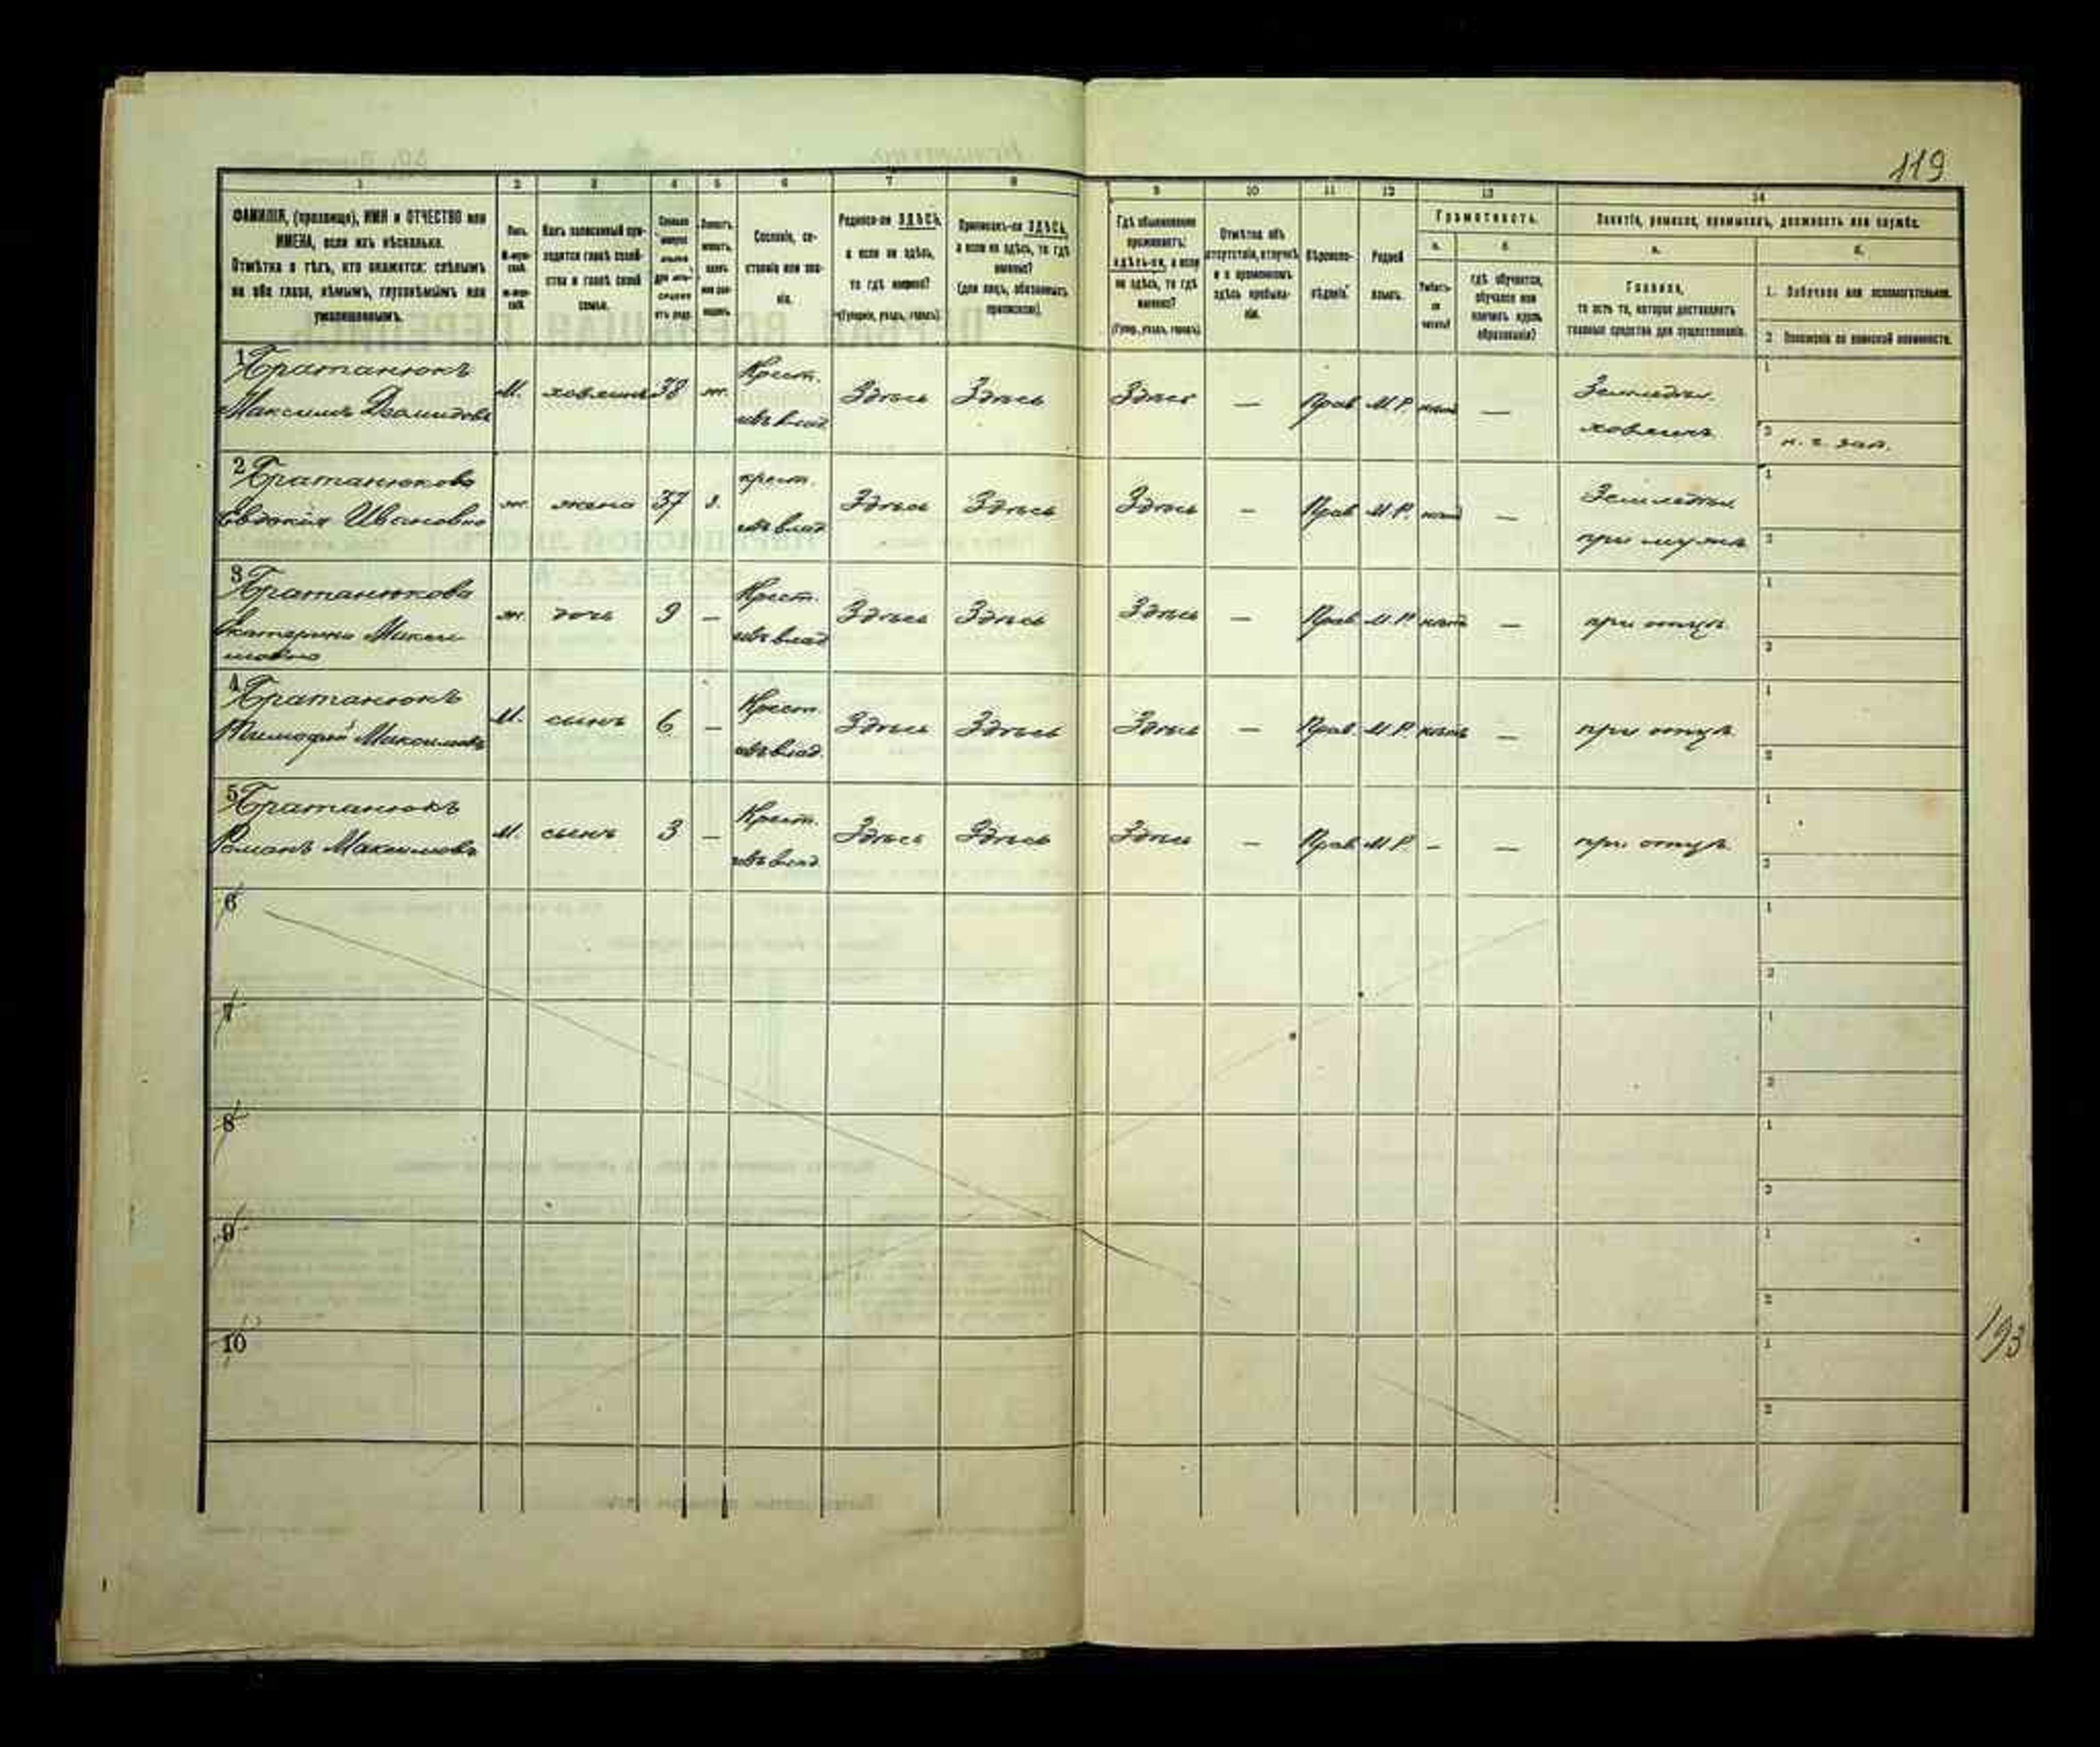 119
1 2 3 4 5 6 7 8 9 10 11 12 13 14
ФАМИЛІЯ, (прозвище), ИМЯ и ОТЧЕСТВО или
ИМЕНА, если ихъ нѣсколько.
Отмѣтка о тѣхъ, кто окажется: слѣпымъ
на оба глаза, нѣмымъ, глухонѣмымъ или
умалишеннымъ.
Полъ.
Какъ записанный при-
ходится главѣ хозяй-
ства и главѣ своей
семьи.
Сословіе, со-
стояніе или зва-
ніе.
Родился-ли ЗДѢСЬ,
а если не здѣсь,
то гдѣ именно?
(Губернія, уѣздъ, городъ).
Приписанъ-ли ЗДѢСЬ,
а если не здѣсь, то гдѣ
именно?
(для лицъ, обязанныхъ
припискою).
Гдѣ обыкновенно
проживаетъ:
здѣсь-ли, а если
не здѣсь, то гдѣ
именно?
(Губер., уѣздъ, городъ).
Отмѣтка объ
отсутствіи, отлучкѣ
и о временномъ
здѣсь пребыва-
ніи.
Вѣроиспо-
вѣданіе.
Родной
языкъ.
Грамотность.
а. б.
Умѣетъ-
ли
читать?
гдѣ обучается,
обучался или
кончилъ курсъ
образованія?
Занятіе, ремесло, промыселъ, должность или служба.
а. б.
Главное,
то есть то, которое доставляетъ
главныя средства для существованія.
1. Побочное или вспомогательное.
2. Положеніе по воинской повинности.
1 Братанюкъ
Максимъ Діомидовъ М. хозяинъ 38 ж. Крест. изъ влад. Здѣсь Здѣсь Здѣсь — Прав М.Р. нѣтъ — Земледѣл. хозяинъ 1 2 н. г. зап.
2 Братанюкова
Евдокія Ивановна ж. жена 37 з. крест. изъ влад Здѣсь Здѣсь Здѣсь — Прав М.Р. нѣтъ — Земледѣл при мужѣ 1 2
3 Братанюкова
Екатерина Макси
мовна ж. дочь 9 — Крест. изъ влад Здѣсь Здѣсь Здѣсь — Прав М.Р нѣтъ — при отцѣ 1 2
4 Братанюкъ
Тимофей Максимовъ М. сынъ 6 — Крест. изъ влад. Здѣсь Здѣсь Здѣсь — Прав. М.Р нѣтъ — при отцѣ 1 2
5 Братанюкъ
Романъ Максимовъ М. сынъ 3 — Крест. изъ влад Здѣсь Здѣсь Здѣсь — Прав М.Р. — — при отцѣ 1 2
6 1 2
7 1 2
8 1 2
9 1 2
10 1 2
193